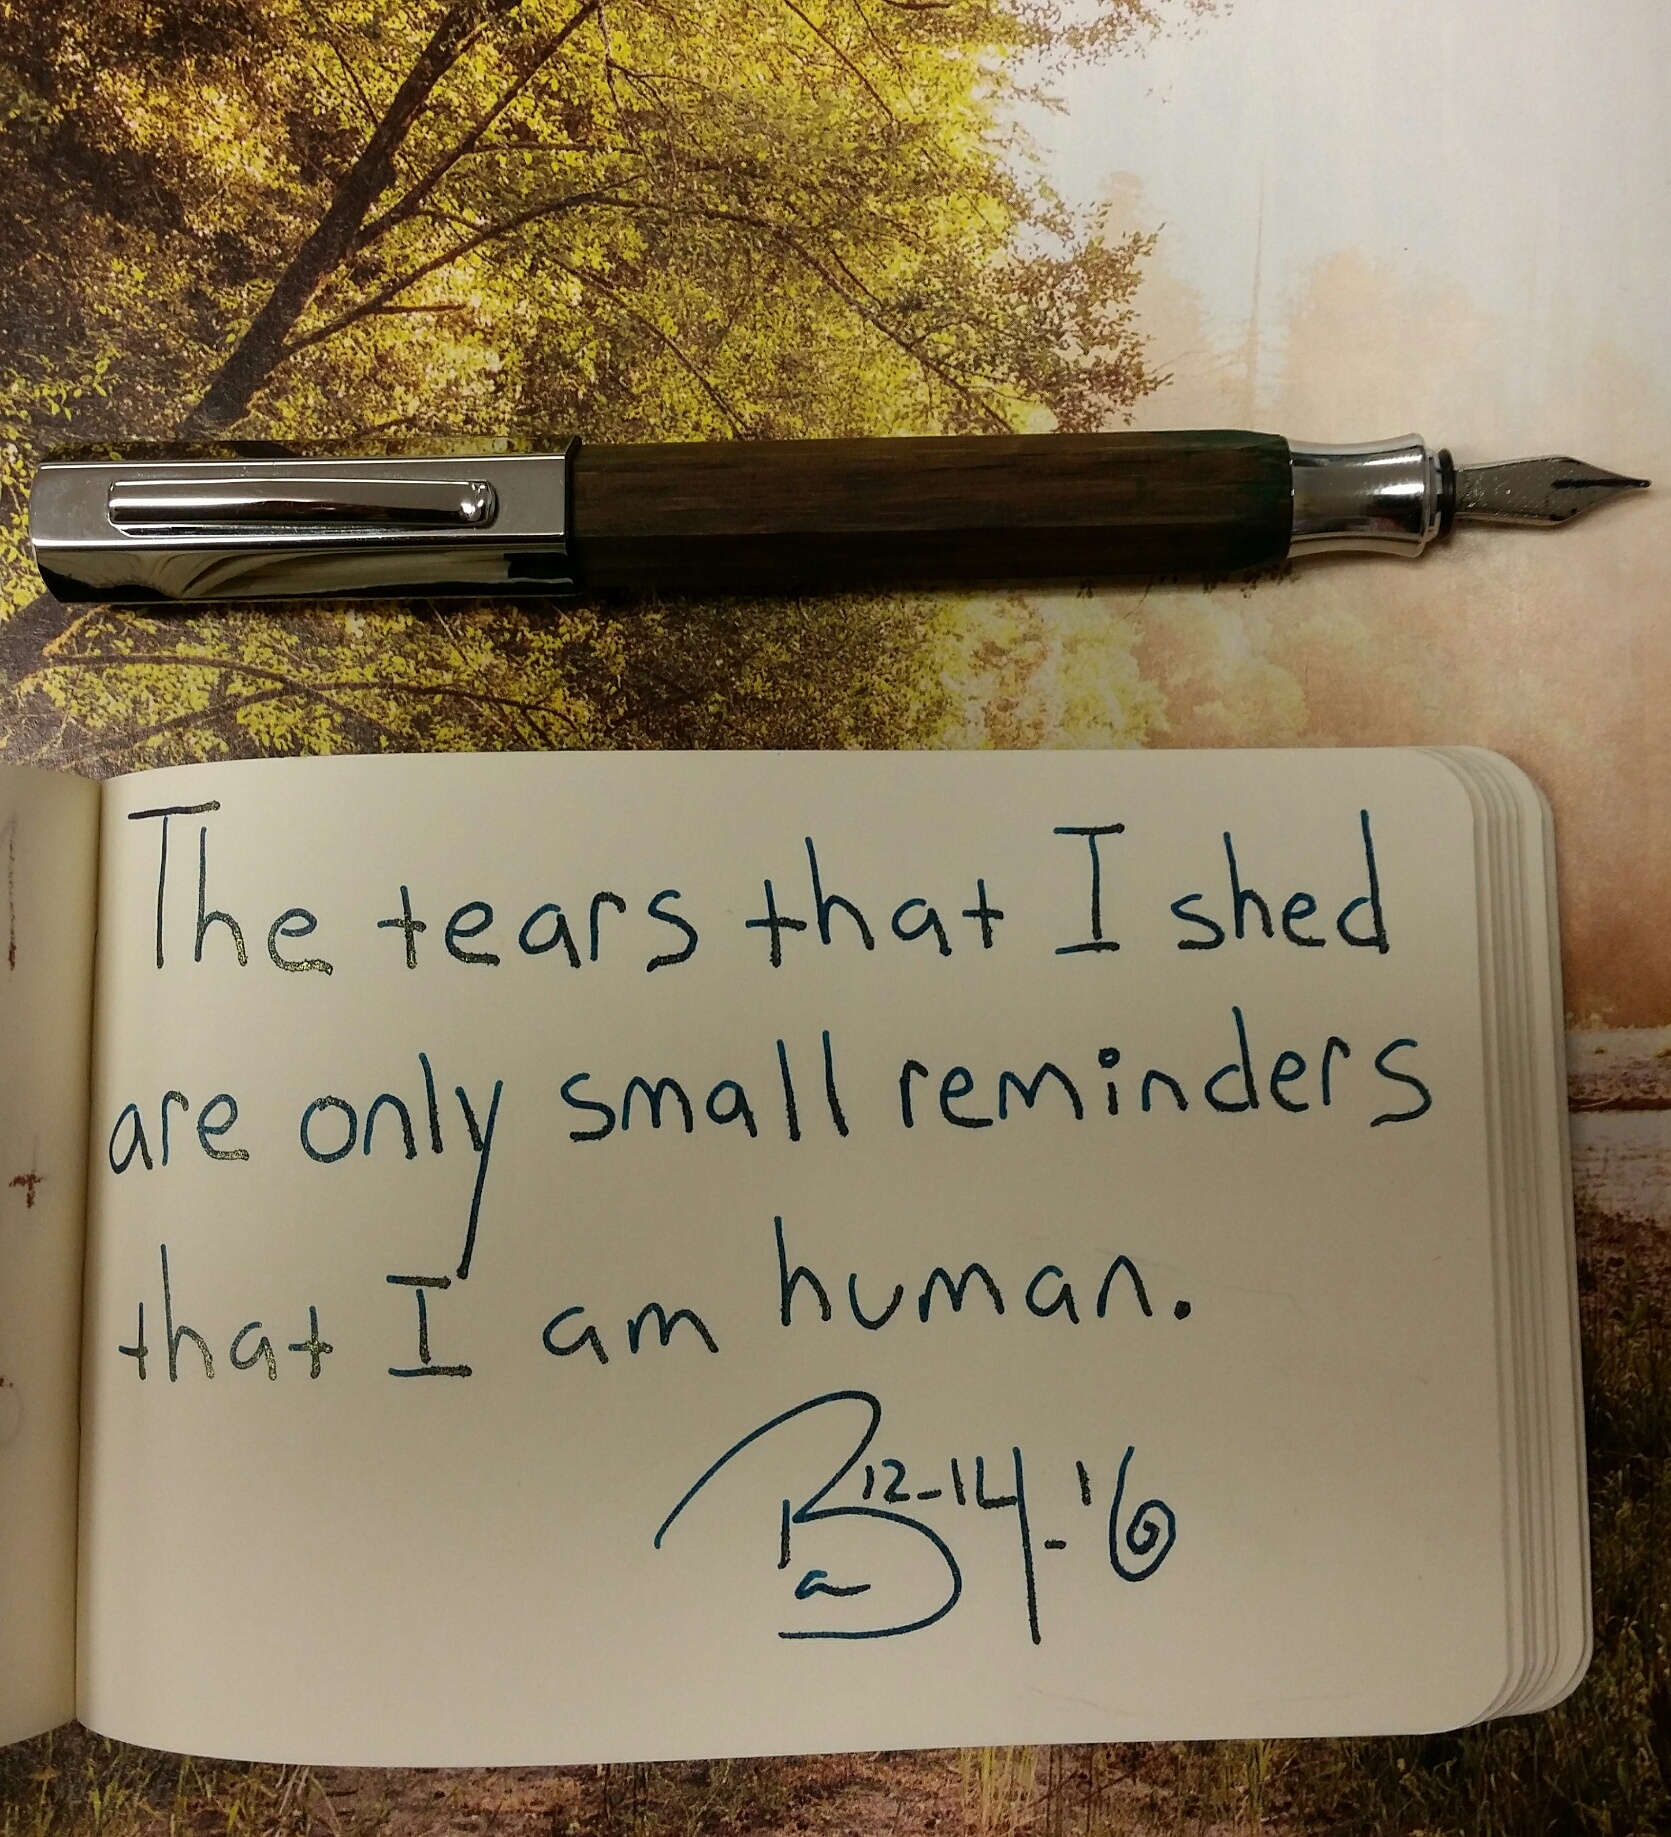 The tears that I shed
are only small reminders
that I am human.
12-14-'16